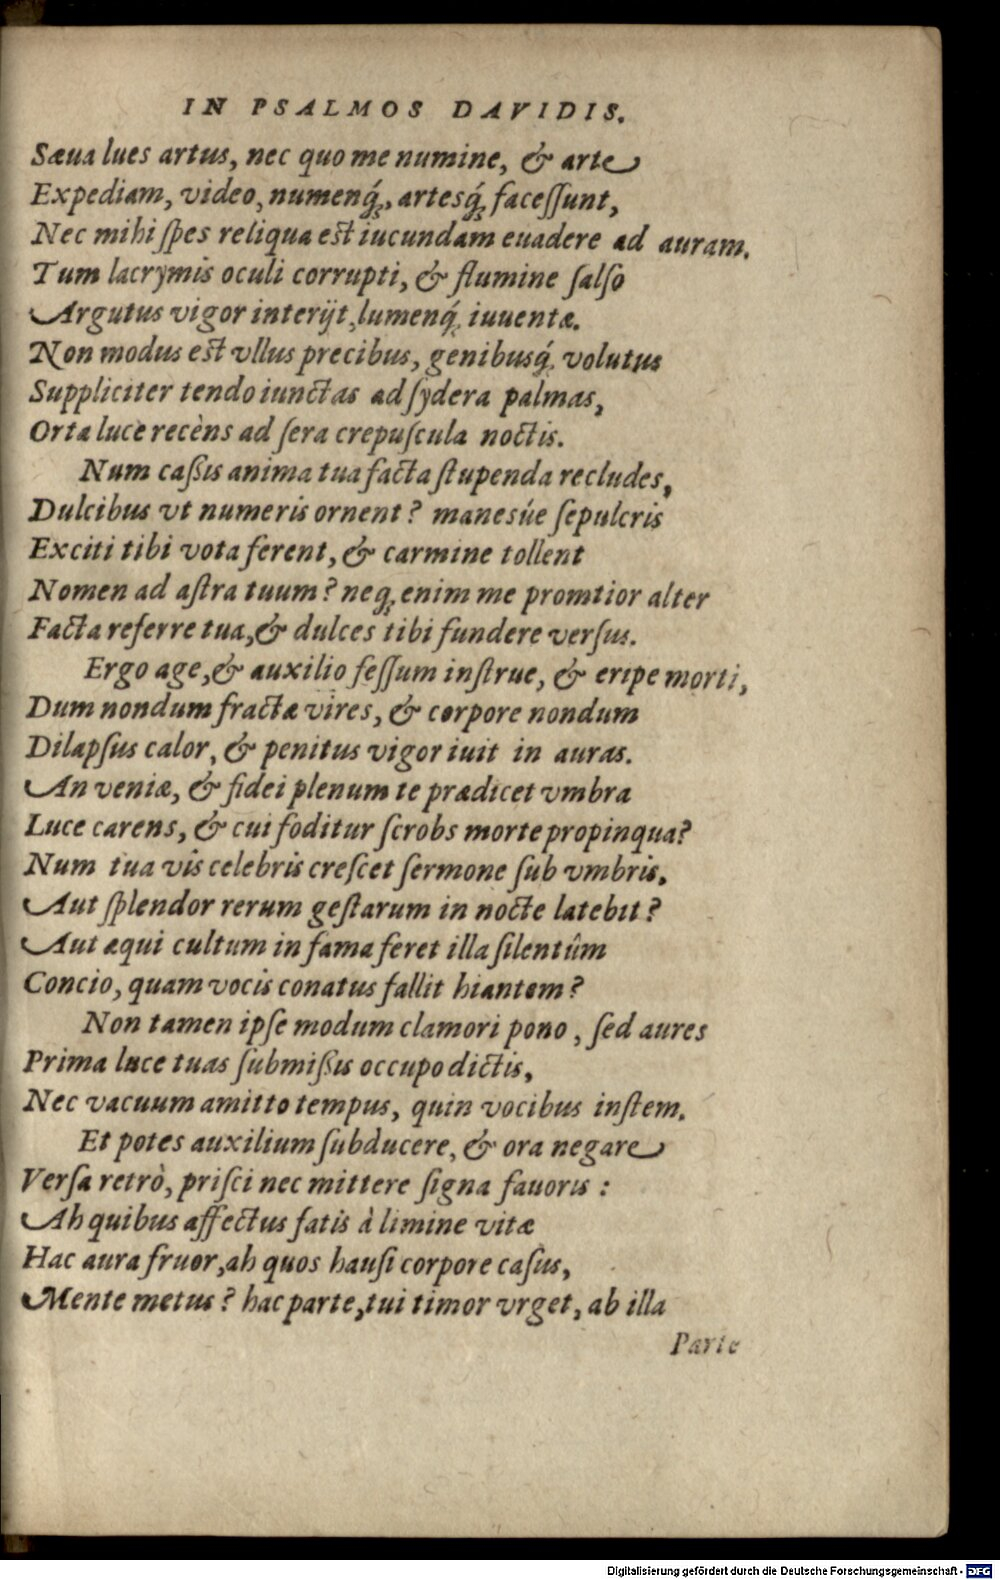 IN PSALMOS DAVIDIS.
Sæua lues artus, nec quo me numine, & arte
Expediam, video, numenq́ꝫ, artesq́ꝫ faceſſunt,
Nec mihi ſpes reliqua est iucundam euadere ad auram.
Tum lacrymis oculi corrupti, & flumine ſalſo
Argutus vigor interijt, lumenq́ꝫ iuuentæ.
Non modus est vllus precibus, genibusq́ꝫ volutus
Suppliciter tendo iunctas ad ſydera palmas,
Orta luce recèns ad ſera crepuſcula noctis.
Num caßis anima tua facta ſtupenda recludes,
Dulcibus vt numeris ornent? manesúe ſepulcris
Exciti tibi vota ferent, & carmine tollent
Nomen ad aſtra tuum? neqꝫ enim me promtior alter
Facta referre tua, & dulces tibi fundere verſus.
Ergo age, & auxilio feſſum inſtrue, & eripe morti,
Dum nondum fractæ vires, & corpore nondum
Dilapſus calor, & penitus vigor iuit in auras.
An veniæ, & fidei plenum te prædicet vmbra
Luce carens, & cui foditur ſcrobs morte propinqua?
Num tua vis celebris creſcet ſermone ſub vmbris,
Aut ſplendor rerum geſtarum in nocte latebit?
Aut æqui cultum in fama feret illa ſilentûm
Concio, quam vocis conatus fallit hiantem?
Non tamen ipſe modum clamori pono, ſed aures
Prima luce tuas ſubmißis occupo dictis,
Nec vacuum amitto tempus, quin vocibus inſtem.
Et potes auxilium ſubducere, & ora negare
Verſa retrò, priſci nec mittere ſigna fauoris:
Ah quibus affectus fatis à limine vitæ
Hac aura fruor, ah quos hauſi corpore caſus,
Mente metus? hac parte, tui timor vrget, ab illa
Parte
Digitalisierung gefördert durch die Deutsche Forschungsgemeinschaft - DFG